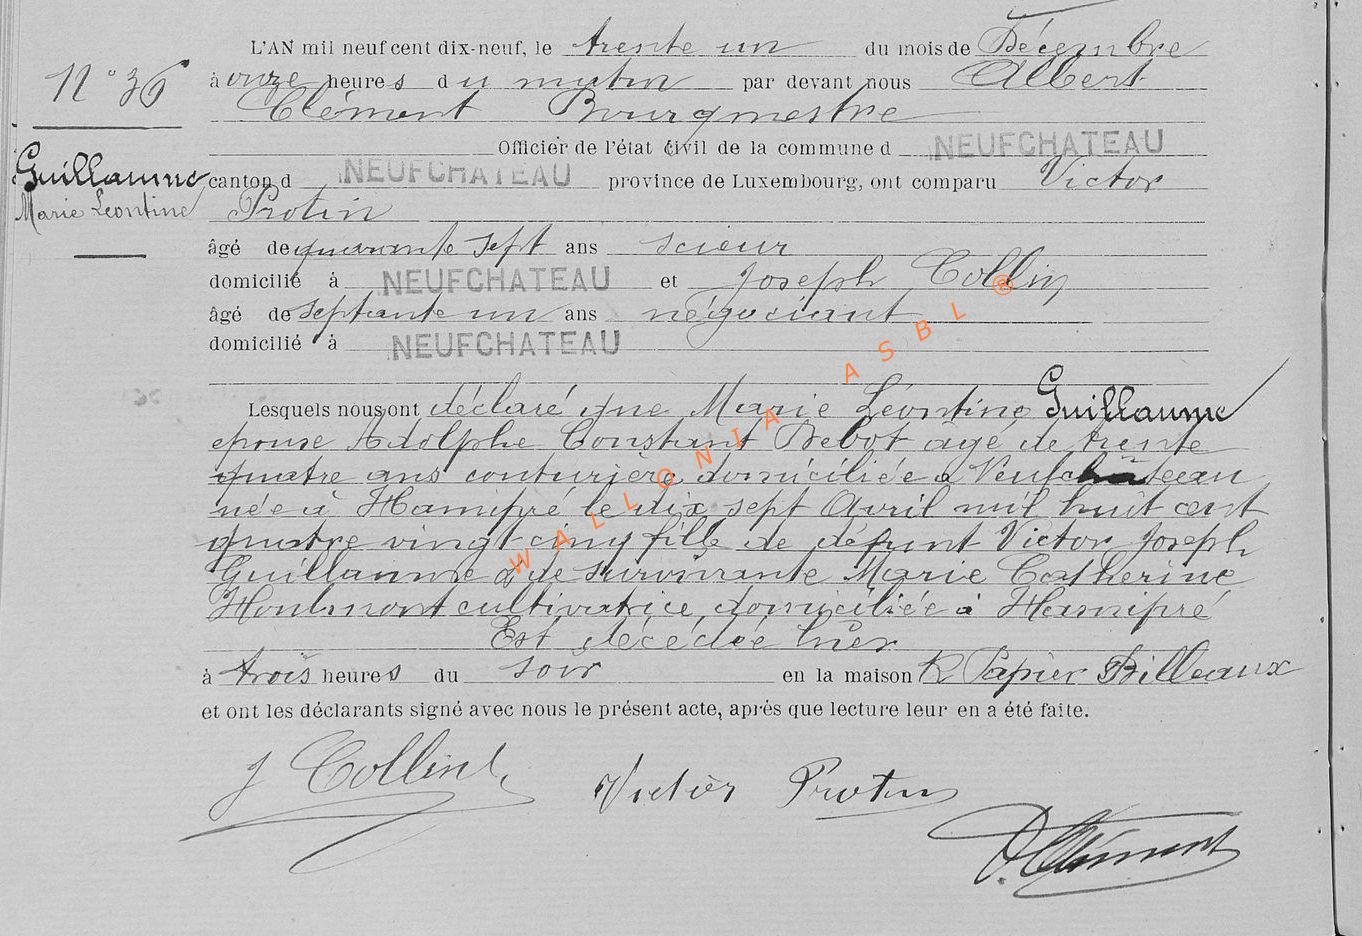 L'AN mil neuf cent dix-neuf, le trente un du mois de Décembre
N° 36
à onze heures du matin par devant nous Albert
Clément Bourgmestre
Officier de l'état civil de la commune d NEUFCHATEAU
Guillaume
Marie Leontine
canton d NEUFCHATEAU province de Luxembourg, ont comparu Victor
Protin
âgé de quarante sept ans scieur
domicilié à NEUFCHATEAU et Joseph Collin
âgé de septante un ans négociant
domicilié à NEUFCHATEAU
Lesquels nous ont déclaré que Marie Léontine Guillaume
epouse Adolphe Constant Bebot agé de trente
quatre ans couturière domiciliée à Neufchâteau
née à Hamipré le dix sept Avril mil huit cent
quatre vingt cinq fille de défunt Victor Joseph
Guillaume & de survivante Marie Catherine
Houlmont cultivatrice domiciliée à Hamipré
Est décédée hier
à trois heures du soir en la maison R Papier Billeaux
et ont les déclarants signé avec nous le présent acte, après que lecture leur en a été faite.
J Collin
Victor Protin
A Clément
WALLONIA ASBL ®